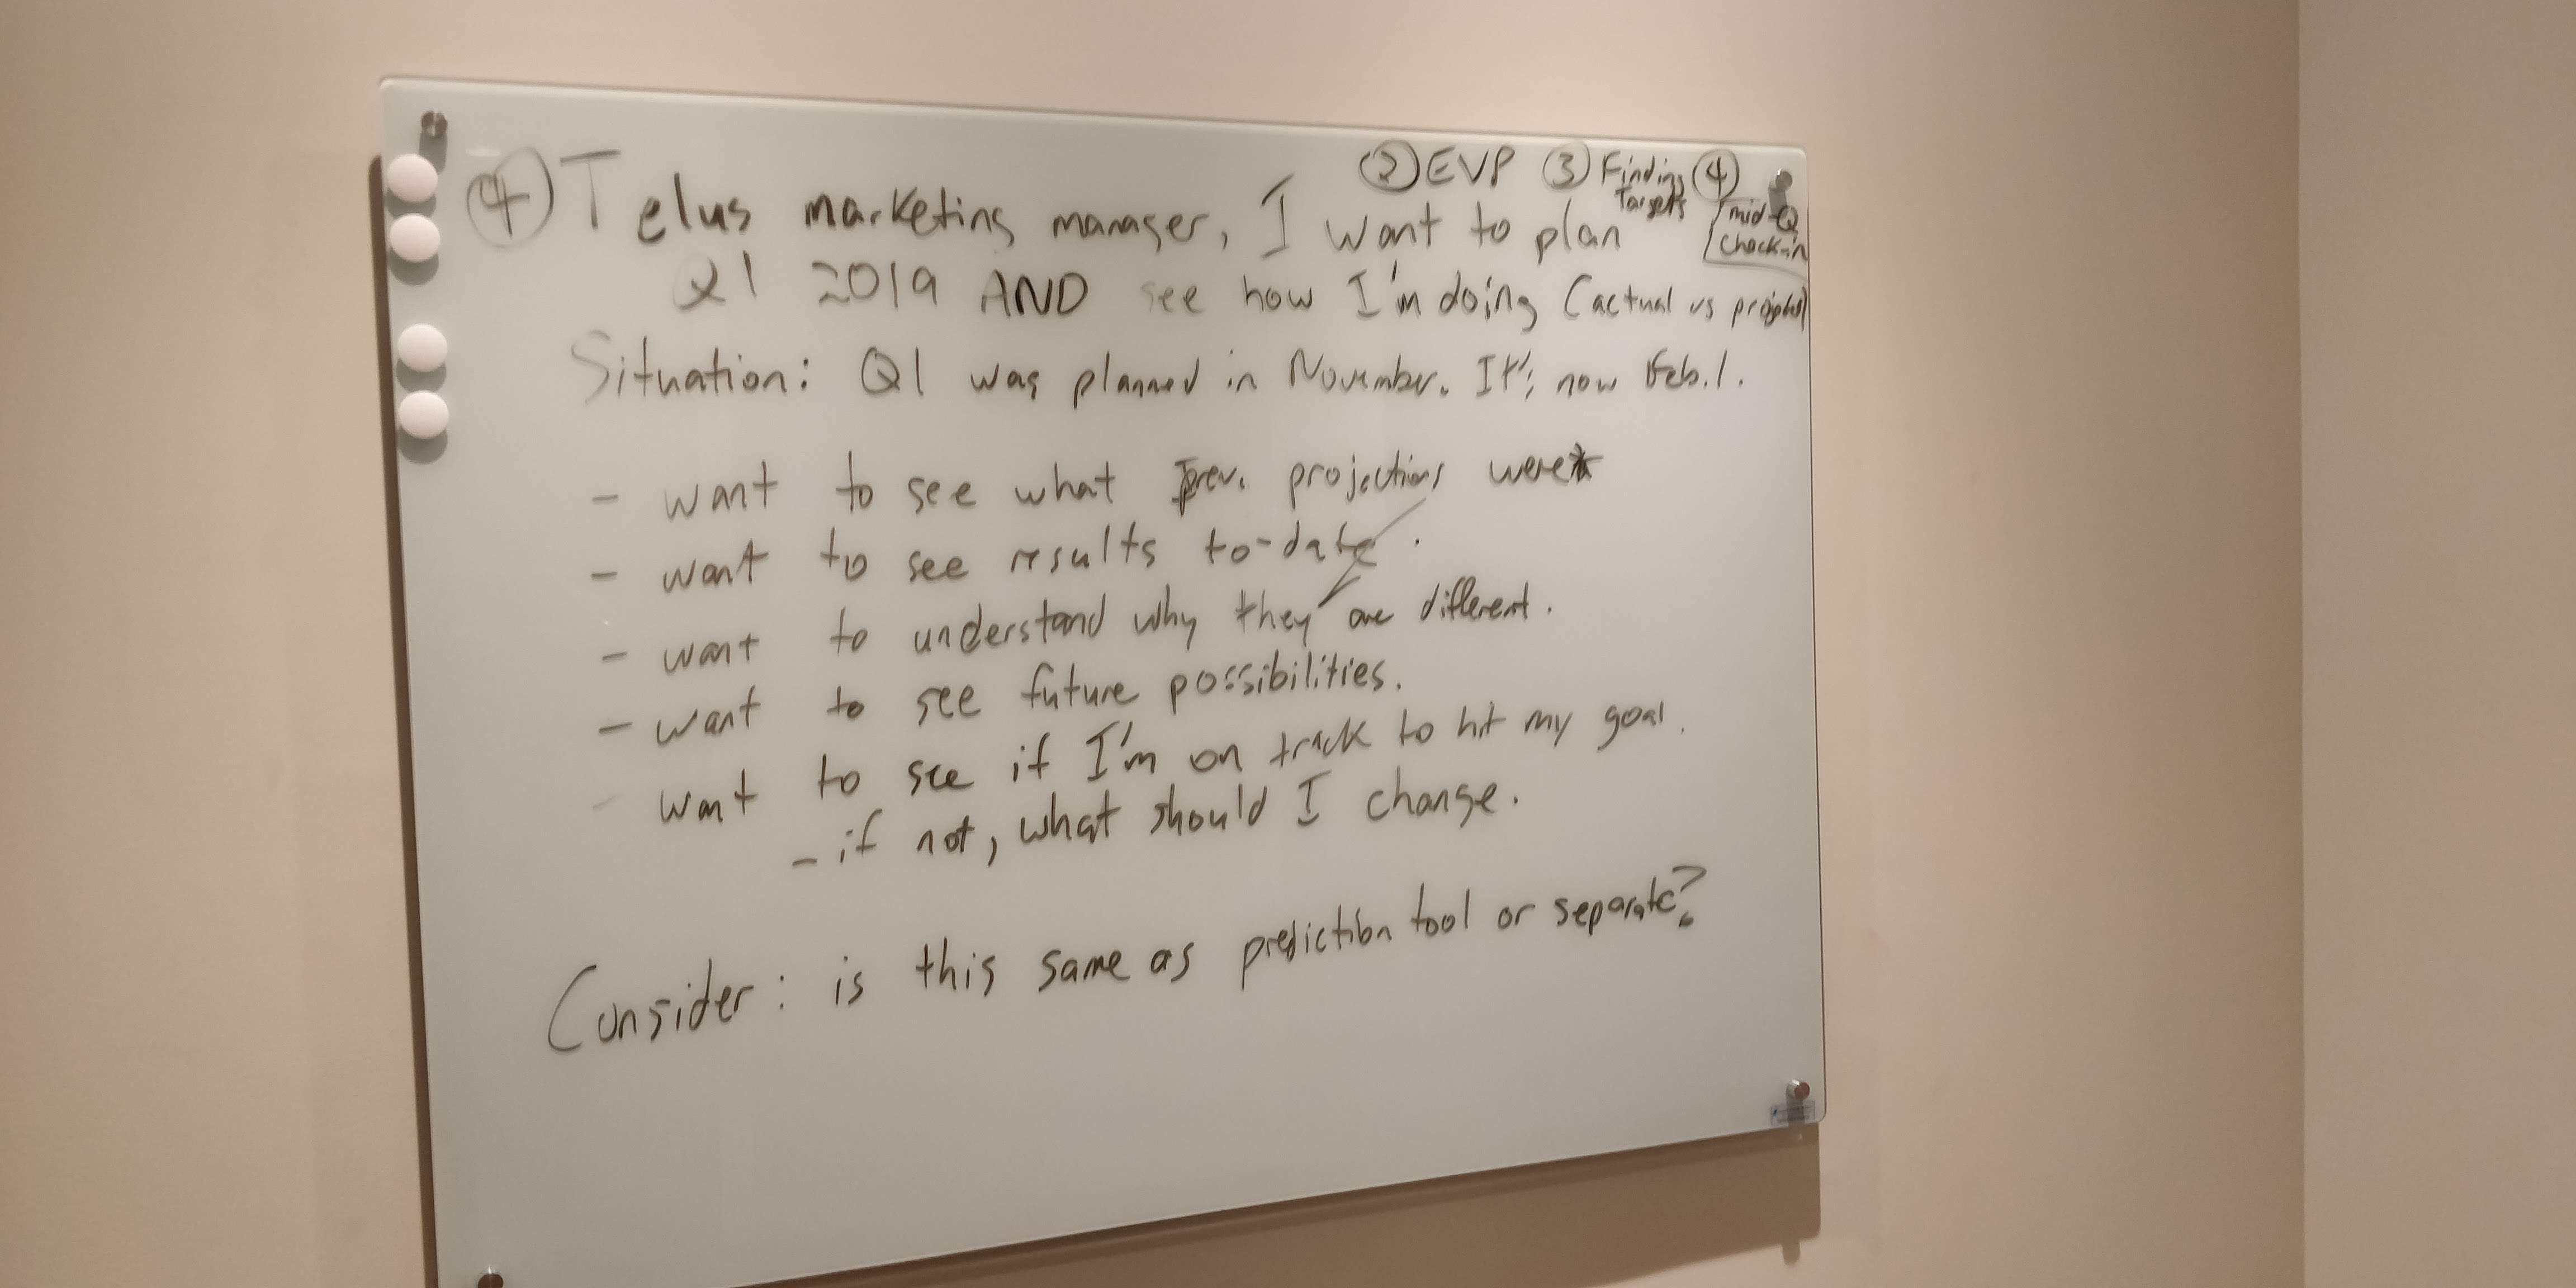 ② EVP ③ Finding Targets ④ mid-Q check-in
④ Telus marketing manager, I want to plan
Q1 2019 AND see how I'm doing (actual vs projected)
Situation: Q1 was planned in November. It's now Feb. 1.
- want to see what prev. projections were*
- want to see results to-date.
- want to understand why they are different.
- want to see future possibilities.
- want to see if I'm on track to hit my goal.
- if not, what should I change.
Consider: is this same as prediction tool or separate?